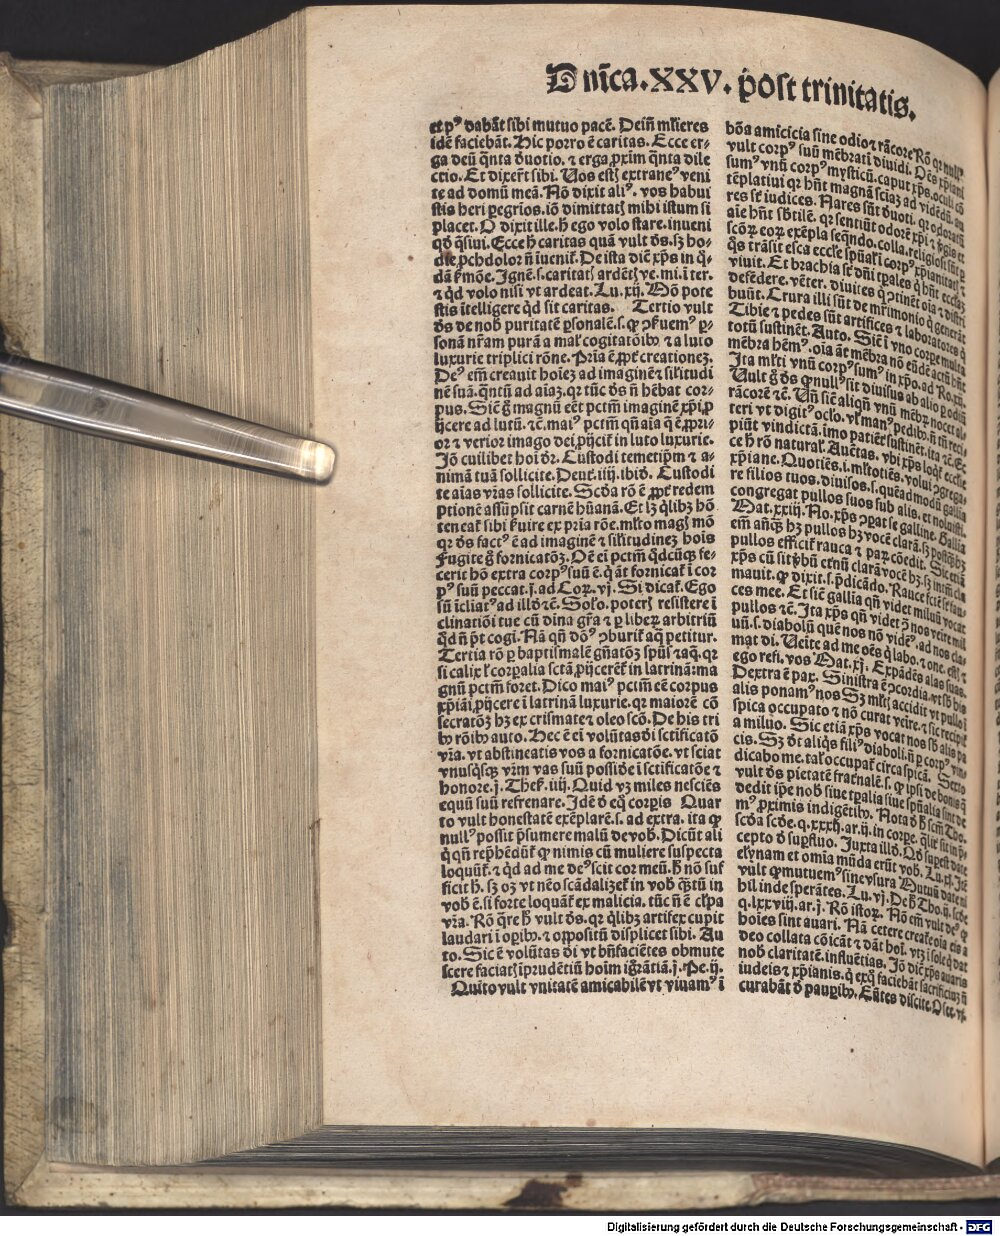 Dnĩca.XXV.post trinitatis.
et pꝰ dabãt sibi mutuo pacẽ. Deiñ mľieres
idẽ faciebãt. Hic porro ẽ caritas. Ecce er-
ga deũ q̃nta đuotio. ⁊ erga ꝓxim̃ q̃nta dile
ctio. Et dixer̃t sibi. Uos estꝭ extraneꝰ veni
te ad domũ meã. Nõ dixit aliꝰ. vos habui
stis heri pegrios. iõ dimittatꝭ mihi istum si
placet. O dixit ille. ħ ego volo stare. inueni
qđ q̃siui. Ecce ħ caritas quã vult ds̃. sꝫ ho-
die ꝓchdolor ñ iuenit̃. De ista diẽ xp̃s in q̃-
dã ẜmõe. Ignẽ .s. caritatꝭ ardẽtꝭ ve. mi. i ter.
⁊ qđ volo nisi vt ardeat. Lu. xij. Nõ pote
stis ĩtelligere qđ sit caritas. Tertio vult
ds̃ de nob̃ puritatẽ ꝑsonalẽ .s. ꝙ ꝯẜuemꝰ ꝑ-
sonã nr̃am purã a mal̃ cogitatõibꝰ ⁊ a luto
luxurie triplici rõne. Pria ẽ ꝓpt̃ creationeꝫ.
Deꝰ em̃ creauit hoiez ad imaginẽ ⁊ sil̃itudi
nẽ suã. q̃ntũ ad aiaꝫ. qꝛ tũc ds̃ ñ hẽbat cor-
pus. Sic̃ g̃ magnũ eẽt pctm̃ imaginẽ xp̃i ꝓ
ijcere ad lutũ. ⁊c̃. maiꝰ pctm̃ qñ aia q̃ ẽ ꝓpri-
or ⁊ verior imago dei ꝓijcit̃ in luto luxurie.
Jõ cuilibet hoi dr̃. Custodi temetip̃m ⁊ a-
nimã tuã sollicite. Deut̃. iiij. ibid̃. Custodi
te aias vr̃as sollicite. Scđa rõ ẽ ꝓpt̃ redem
ptionẽ assũpsit carnẽ hũanã. Et lꝫ q̃libꝫ hõ
teneat̃ sibi ẜuire ex pria rõe. ml̃to magꝭ mõ
qꝛ ds̃ factꝰ ẽ ad imaginẽ ⁊ sil̃itudineꝫ hois
Fugite g̃ fornicatõꝫ. Oẽ ei pctm̃ qđcũqꝫ fe-
cerit hõ extra corpꝰ suũ ẽ. q̃ ãt fornicat̃ ĩ cor
pꝰ suũ peccat. j. ad Coꝝ. vj. Si dicat̃. Ego
sũ ĩcliatꝰ ad illđ ⁊c̃. Sol̃o. poterꝭ resistere ĩ
clinatiõi tue cũ dina gr̃a ⁊ ꝑ libeꝝ arbitriũ
Qđ ñ p̃t cogi. Nã qñ dõꝰ ꝯburit̃ aq̃ petitur.
Tertia rõ ꝑ baptismalẽ gñatõꝫ spũs ⁊ aq̃. qꝛ
si calix l̃ corꝑalia sctã ꝓijcerẽt̃ in latrinã: ma
gnũ pctm̃ foret. Dico maiꝰ pctm̃ eẽ corpus
xp̃iãi ꝓijcere ĩ latrinã luxurie. qꝛ maiorẽ cõ
secratõꝫ hꝫ ex crismate ⁊ oleo scõ. De his tri
bꝰ rõibꝰ auto. Hec ẽ ei volũtas di sctificatõ
vr̃a. vt abstineatis vos a fornicatõe. vt sciat
vnusq̃sqꝫ vr̃m vas suũ possiđe ĩ sctificatõe ⁊
honore. j. Thes̃. iiij. Quid vꝫ miles nesciẽs
equũ suũ refrenare. Idẽ đ eq̃ corꝑis Quar
to vult honestatẽ exẽplarẽ .s. ad extra. ita ꝙ
nullꝰ possit p̃sumere malũ de vob̃. Dicũt ali
q̃ qñ rep̃hẽdũt̃ ꝙ nimis cũ muliere suspecta
loquũt̃. ⁊ qđ ad me deꝰ scit cor meũ. ħ nõ suf
ficit ħ. sꝫ oꝫ vt nẽo scãdalizet̃ in vob̃ q̃tũ in
vob̃ ẽ. si forte loquãt̃ ex malicia. tũc ñ ẽ cľpa
vr̃a. Rõ q̃re ħ vult ds̃. qꝛ q̃libꝫ artifex cupit
laudari ĩ oꝑibꝰ. ⁊ oppositũ displicet sibi. Au
to. Sic ẽ volũtas di vt bñfaciẽtes obmute
scere faciatꝭ ĩprudẽtiũ hoim igr̃ãtiã. j. Pe. ij.
Quito vult vnitatẽ amicabilẽ vt viuamꝰ ĩ
bõa amicicia sine odio ⁊ rãcore Rõ qꝛ nullꝰ
vult corpꝰ suũ mẽbrati diuidi. Oẽs xp̃iani
sumꝰ vnũ corpꝰ mysticũ. caput xp̃s. oculi cõ
tẽplatiui qꝛ hñt magnã sciaꝫ ad vidẽdũ. au
res st̃ iudices. Nares sũt đuoti. qꝛ odoratũ
aie hñt sb̃tilẽ. qꝛ sentiũt odorẽ xp̃i ⁊ et
scõꝝ eoꝝ exẽpla seq̃ndo. colla. religiosi sũt ꝑ
q̃s trãsit esca eccl̃e sp̃uał̃ ĩ corpꝰ xp̃ianitatꝭ ⁊
viuit. Et brachia st̃ dñi tꝑales q̃ hñt eccl̃aꝫ
defẽdere. vẽter. diuites q̃ ꝯtinẽt oia ⁊ distri
buũt. Crura illi sũt de mr̃imonio q̃ generãt
Tibie ⁊ pedes sũt artifices ⁊ laboratores q̃
totũ sustinẽt. Auto. Sic̃ ĩ vno corꝑe multa
mẽbra hẽmꝰ. oia ãt mẽbra nõ eũdẽ actũ hñt
Ita ml̃ti vnũ corpꝰ sumꝰ in xp̃o. ad Ro. xij.
Vult g̃ ds̃ ꝙ nullꝰ sit diuisus ab alio ꝑ odiũ
rãcorẽ ⁊c̃. Uñ sic̃ aliqñ vnũ mẽbꝝ nocet al-
teri vt digitꝰ ocľo. vľ manꝰ pedibꝰ. ñ tñ reci-
piũt vindictã. imo patiẽt̃ sustinẽt. ita ⁊c̃. Et
ce ħ rõ natural̃. Auc̃tas. vbi xp̃s loqt̃ eccl̃ie
xp̃iane. Quotiẽs .i. ml̃totiẽs. volui ꝯgrega-
re filios tuos. diuisos .s. quẽadmodũ gallia
congregat pullos suos sub alis. et noluisti.
Mat. xxiij. No. xp̃s ꝯꝑat se galline. Gallia
em̃ añqꝫ hꝫ pullos hꝫ vocẽ clarã. sꝫ postqꝫ hꝫ
pullos efficit̃ rauca ⁊ paꝝ cõedit. Sic etiã
xp̃s cũ sit v̾bũ et̃nũ clarã vocẽ hꝫ. sꝫ
mauit. ꝙ dixit .s. p̃dicãdo. Rauce
ces mee. Et sic̃ gallia qñ videt miluũ vocat
pullos ⁊c̃. Ita xp̃s qñ videt ꝯ nos veire mil
uũ .s. diabolũ quẽ nos nõ vidẽꝰ. ad nos cla-
mat di. Ueite ad me oẽs q̃ labo. ⁊ one. estꝭ ⁊
ego refi. vos Mat. xj. Expãdẽs alas suas.
Dextra ẽ pax. Sinistra ẽ ꝯcordia. vt sb̃ his
alis ponamꝰ nos Sꝫ ml̃tꝭ accidit vt pullo ĩ
spica occupato ⁊ nõ curat veire. ⁊ sic recipit̃
a miluo. Sic etiã xp̃s vocat nos sb̃ alis pa
cis. Sꝫ đt aliq̃s filiꝰ diaboli. ñ ꝑ corpꝰ vin-
dicabo me. tal̃ occupat̃ circa spicã. Sexto
vult ds̃ pietatẽ frat̃nalẽ .s. ꝙ ip̃i de bonis q̃
dedit ip̃e nob̃ siue tꝑalia siue sp̃ualia sint de
mꝰ ꝓximis indigẽtibꝰ. Nota đ ħ scđm Tho.
scđa scđe. q. xxxij. ar. ij. in corꝑe. q̃lit̃ sit in p̃-
cepto đ suꝑfluo. Iuxta illđ. Qđ suꝑest date
eľynam et omia mũda erũt vob̃. Lu. xj. Itẽ
vult ꝙ mutuemꝰ sine vsura Mutuũ date ni
hil inde sperãtes. Lu. vj. De ħ Tho. ij. scđe
q. lxxviij. ar. j. Rõ istoꝝ. Nõ em̃ vult deꝰ ꝙ
hoies sint auari. Nã cetere creat̃e oia eis a
deo collata cõicãt ⁊ dãt hoi. vtꝫ ĩ sole q̃ dat
nob̃ claritatẽ. influẽtias. Jõ dic̃ xp̃s auaris
iudeis ⁊ xp̃ianis. q̃ exq̃ faciebãt sacrificiuꝫ ñ
curabãt đ pauꝑibꝰ. Eũtes discite. Osee. vj.
Digitalisierung gefördert durch die Deutsche Forschungsgemeinschaft - DFG